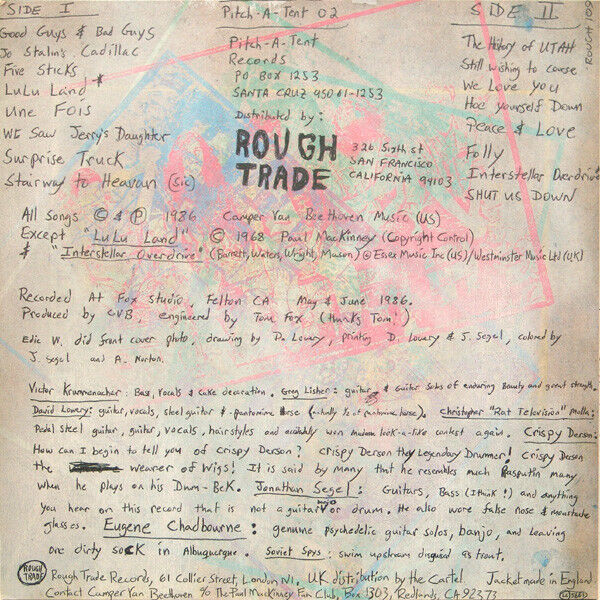 SIDE I
Good Guys & Bad Guys
Jo Stalin's Cadillac
Five Sticks
LuLu Land *
Une Fois
We Saw Jerry's Daughter
Surprise Truck
Stairway to Heavan (sic)
Pitch-A-Tent 02
Pitch-A-Tent
Records
PO Box 1253
SANTA CRUZ 95061-1253
Distributed by:
ROUGH
TRADE
326 Sixth st
SAN FRANCISCO
CALIFORNIA 94103
SIDE II
The History of UTAH
Still wishing to course
We Love you
Hoe yourself Down
Peace & Love
Folly
Interstellar Overdrive
SHUT US DOWN
ROUGH 109
All Songs © & ℗ 1986 Camper Van Beethoven Music (US)
Except "LuLu Land" © 1968 Paul MacKinney (Copyright Control)
& "Interstellar Overdrive" (Barrett, Waters, Wright, Mason) © Essex Music Inc (US)/Westminster Music Ltd (UK)
Recorded At Fox Studio, Felton CA May & June 1986.
Produced by CVB, engineered by Tom Fox (thanks Tom!)
Edie W. did front cover photo, drawing by D. Lowery, printing D. Lowery & J. Segel, colored by
J. Segel and A. Norton.
Victor Krummenacher: Bass, Vocals & cake decoration. Greg Lisher: guitar & Guitar Solos of enduring Beauty and great strength.
David Lowery: guitar, vocals, steel guitar & pantomime horse (actually ½ of pantomime horse). Christopher "Rat Television" Molla:
Pedal steel guitar, guitar, vocals, hairstyles and won madonna look-a-like contest again. Crispy Derson:
How can I begin to tell you of crispy Derson? crispy Derson the Legendary Drummer! Crispy Derson
the wearer of Wigs! It is said by many that he resembles much Rasputin many
when he plays on his Drum-BeK. Jonathan Segel: Guitars, Bass (I think!) and anything
you hear on this record that is not a guitar banjo or drum. He also wore false nose & moustache
glasses. Eugene Chadbourne: genuine psychedelic guitar solos, banjo, and leaving
one dirty sock in Albuquerque. Soviet Spys: swim upstream disguised as trout.
ROUGH
TRADE
Rough Trade Records, 61 Collier Street, London N1, U.K. distribution by the Cartel. Jacket made in England
Contact Camper Van Beethoven % The Paul MacKinney Fan Club, Box 1303, Redlands, CA 92373